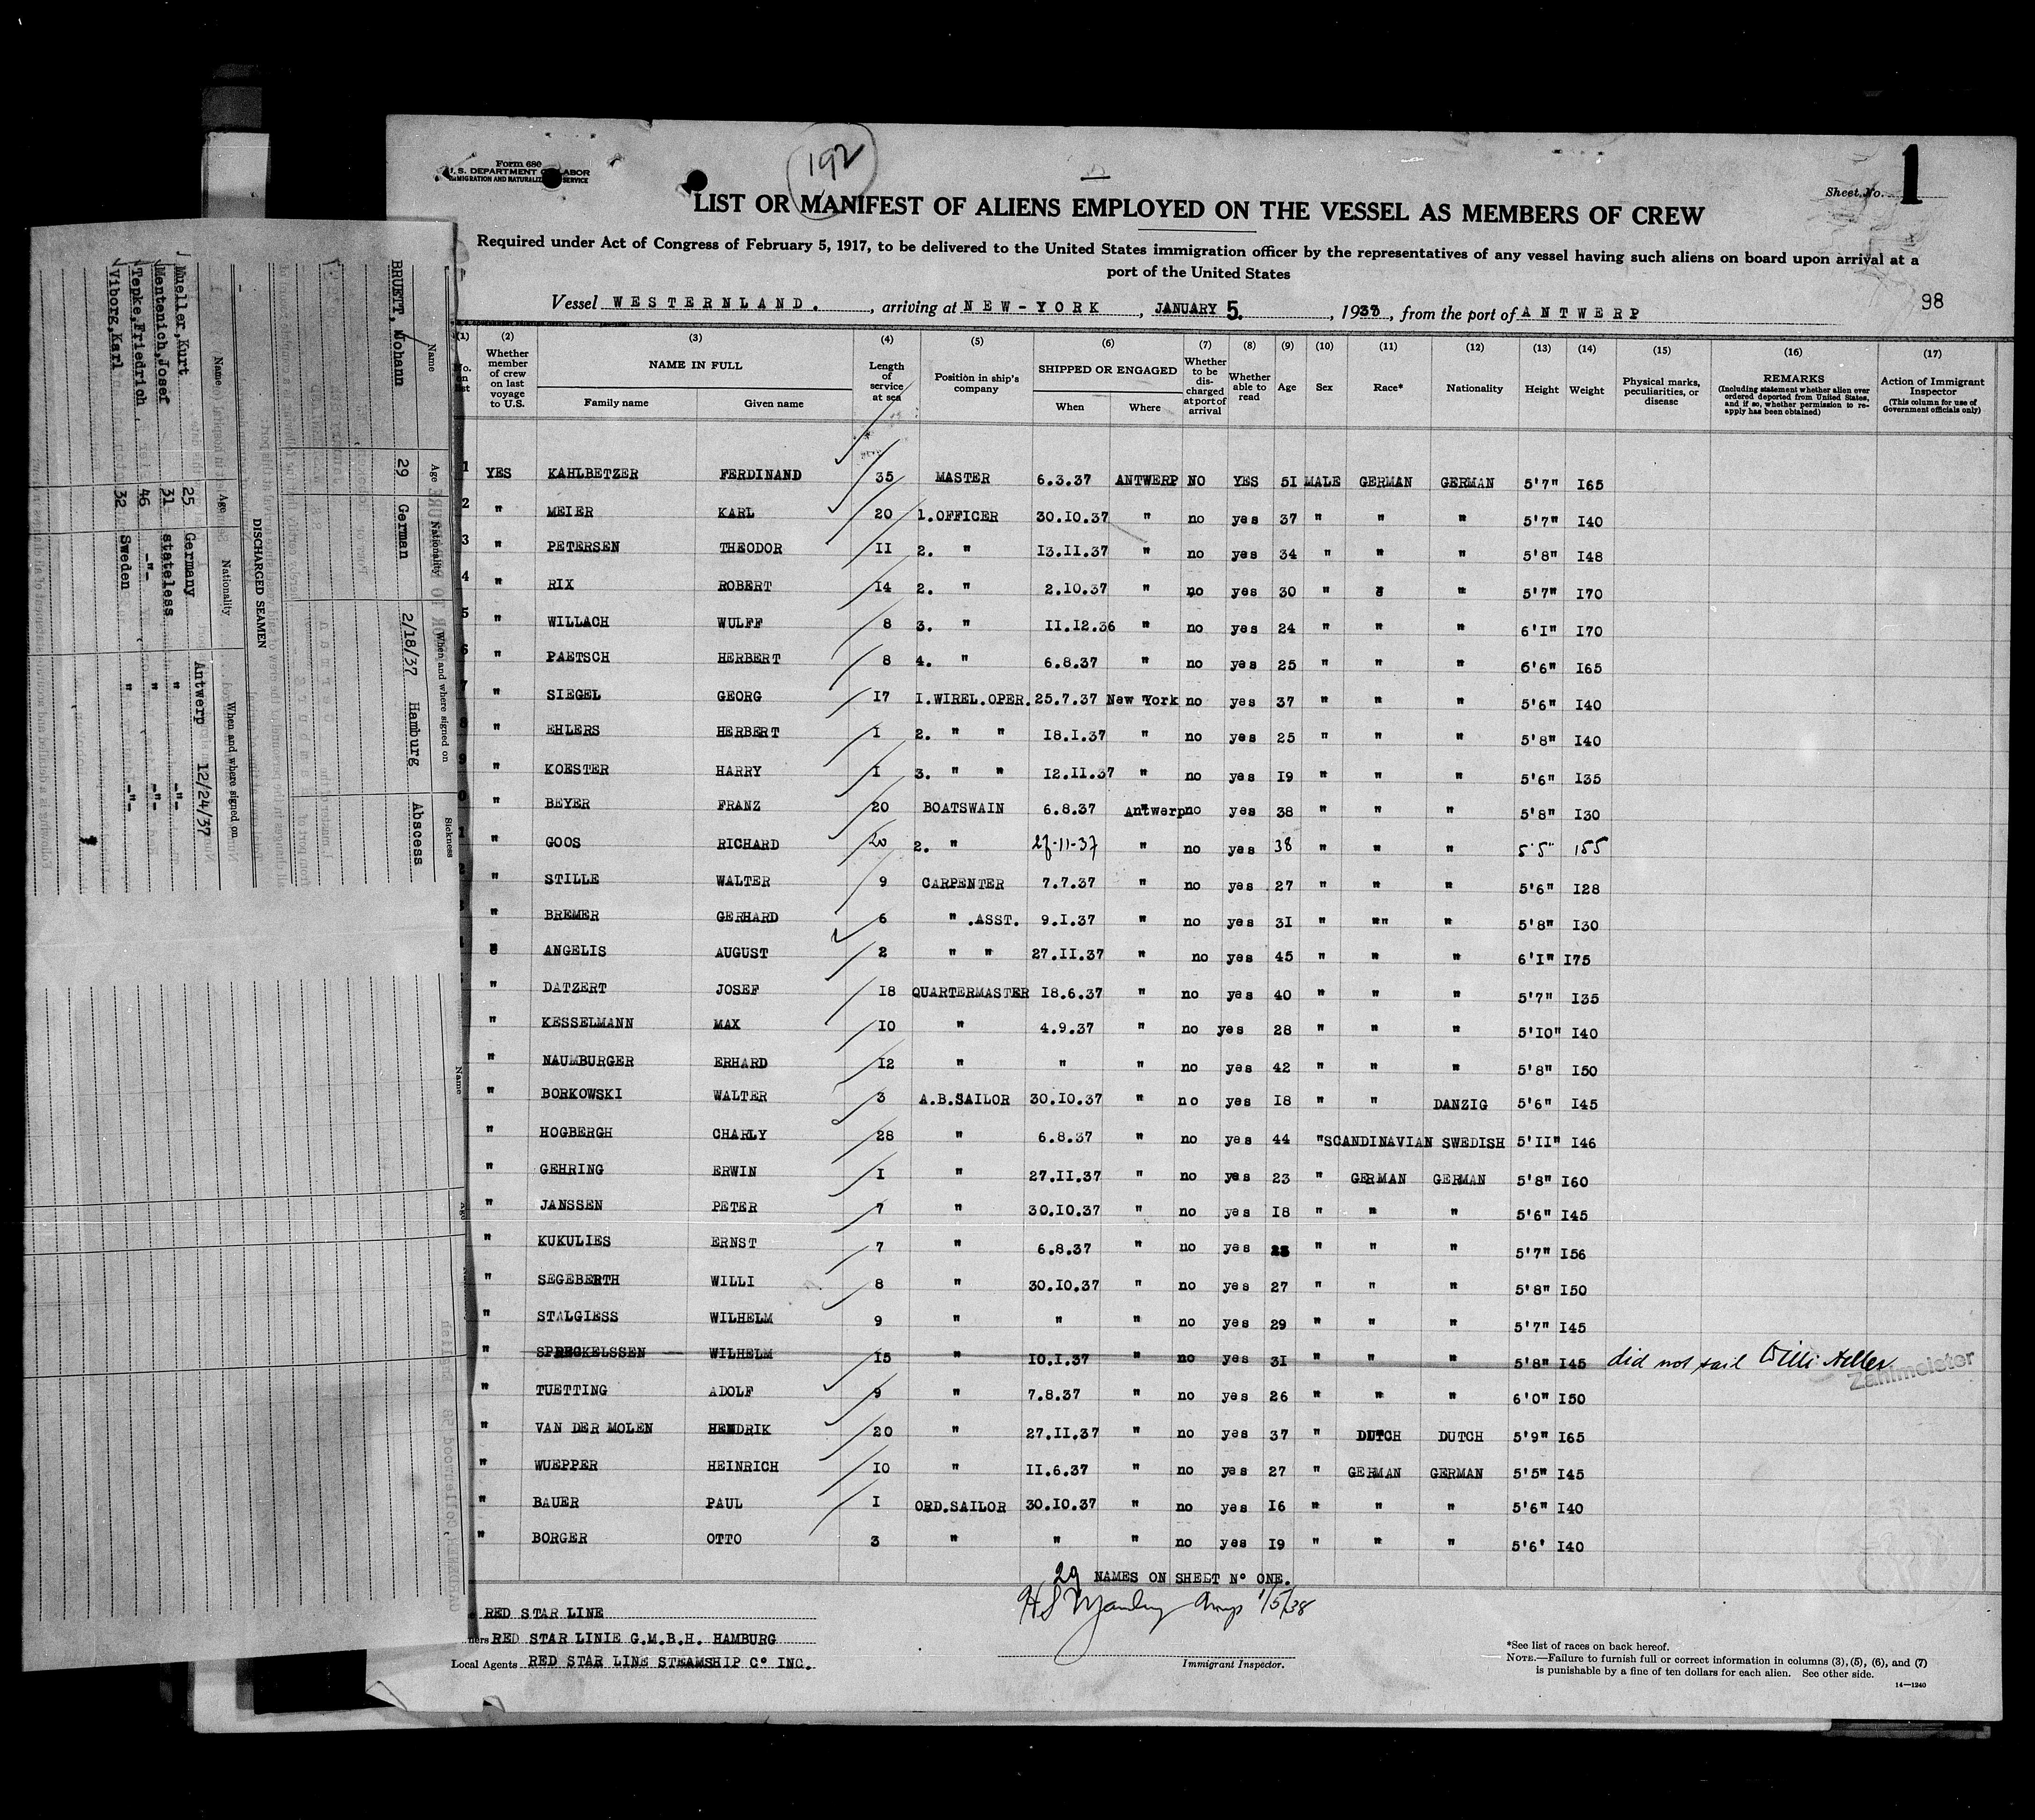 Form 680
U. S. DEPARTMENT OF LABOR
IMMIGRATION AND NATURALIZATION SERVICE
192
Sheet No. 1
LIST OR MANIFEST OF ALIENS EMPLOYED ON THE VESSEL AS MEMBERS OF CREW
Required under Act of Congress of February 5, 1917, to be delivered to the United States immigration officer by the representatives of any vessel having such aliens on board upon arrival at a
port of the United States
Vessel WESTERNLAND. , arriving at NEW-YORK , JANUARY 5. , 1938 , from the port of ANTWERP
98
(1) (2) (3) (4) (5) (6) (7) (8) (9) (10) (11) (12) (13) (14) (15) (16) (17)
Whether member of crew on last voyage to U.S.
NAME IN FULL
Family name Given name
Length of service at sea
Position in ship's company
SHIPPED OR ENGAGED
When Where
Whether to be discharged at port of arrival
Whether able to read
Age Sex Race* Nationality Height Weight
Physical marks, peculiarities, or disease
REMARKS
(Including statement whether alien ever ordered deported from United States, and if so, whether permission to reapply has been obtained)
Action of Immigrant Inspector
(This column for use of Government officials only)
1 YES KAHLBETZER FERDINAND 35 MASTER 6.3.37 ANTWERP NO YES 5I MALE GERMAN GERMAN 5'7" I65
2 " MEIER KARL 20 1.OFFICER 30.I0.37 " no yes 37 " " " 5'7" I40
3 " PETERSEN THEODOR II 2. " I3.II.37 " no yes 34 " " " 5'8" I48
4 " RIX ROBERT I4 2. " 2.I0.37 " no yes 30 " " " 5'7" I70
5 " WILLACH WULFF 8 3. " II.I2.36 " no yes 24 " " " 6'I" I70
6 " PAETSCH HERBERT 8 4. " 6.8.37 " no yes 25 " " " 6'6" I65
7 " SIEGEL GEORG I7 I.WIREL.OPER. 25.7.37 New York no yes 37 " " " 5'6" I40
8 " EHLERS HERBERT I 2. " " I8.I.37 " no yes 25 " " " 5'8" I40
9 " KOESTER HARRY I 3. " " I2.II.37 " no yes I9 " " " 5'6" I35
0 " BEYER FRANZ 20 BOATSWAIN 6.8.37 Antwerp no yes 38 " " " 5'8" I30
1 " GOOS RICHARD 20 2. " 27-11-37 " no yes 38 " " " 5'5" 155
" STILLE WALTER 9 CARPENTER 7.7.37 " no yes 27 " " " 5'6" I28
" BREMER GERHARD 6 " .ASST. 9.I.37 " no yes 3I " "" " 5'8" I30
" ANGELIS AUGUST 2 " " 27.II.37 " no yes 45 " " " 6'I" I75
" DATZERT JOSEF I8 QUARTERMASTER I8.6.37 " no yes 40 " " " 5'7" I35
" KESSELMANN MAX I0 " 4.9.37 " no yes 28 " " " 5'I0" I40
" NAUMBURGER ERHARD I2 " " " no yes 42 " " " 5'8" I50
" BORKOWSKI WALTER 3 A.B.SAILOR 30.I0.37 " no yes I8 " " DANZIG 5'6" I45
" HOGBERGH CHARLY 28 " 6.8.37 " no yes 44 " SCANDINAVIAN SWEDISH 5'II" I46
" GEHRING ERWIN I " 27.II.37 " no yes 23 " GERMAN GERMAN 5'8" I60
" JANSSEN PETER 7 " 30.I0.37 " no yes I8 " " " 5'6" I45
" KUKULIES ERNST 7 " 6.8.37 " no yes " " " 5'7" I56
" SEGEBERTH WILLI 8 " 30.I0.37 " no yes 27 " " " 5'8" I50
" STALGIESS WILHELM 9 " " " no yes 29 " " " 5'7" I45
" SPRECKELSSEN WILHELM I5 " I0.I.37 " no yes 3I " " " 5'8" I45 did not sail Willi Adler Zahlmeister
" TUETTING ADOLF 9 " 7.8.37 " no yes 26 " " " 6'0" I50
" VAN DER MOLEN HENDRIK 20 " 27.II.37 " no yes 37 " DUTCH DUTCH 5'9" I65
" WUEPPER HEINRICH I0 " II.6.37 " no yes 27 " GERMAN GERMAN 5'5" I45
" BAUER PAUL I ORD.SAILOR 30.I0.37 " no yes I6 " " " 5'6" I40
" BORGER OTTO 3 " " " no yes I9 " " " 5'6' I40
29 NAMES ON SHEET Nº ONE.
1/5/38
RED STAR LINE
RED STAR LINIE G.M.B.H. HAMBURG
Local Agents RED STAR LINE STEAMSHIP Cº INC.
Immigrant Inspector.
*See list of races on back hereof.
NOTE.—Failure to furnish full or correct information in columns (3), (5), (6), and (7)
is punishable by a fine of ten dollars for each alien. See other side.
14—1240
Name Age Nationality When and where signed on Sickness
BRUETT, Johann 29 German 2/18/37 Hamburg Abscess
DISCHARGED SEAMEN
Name Age Nationality When and where signed on
Mueller,Kurt 25 Germany Antwerp 12/24/37
Mentenich,Josef 31 stateless " -"-
Tenke,Friedrich 46 -"- " -"-
Viborg,Karl 32 Sweden " -"-
Name Age